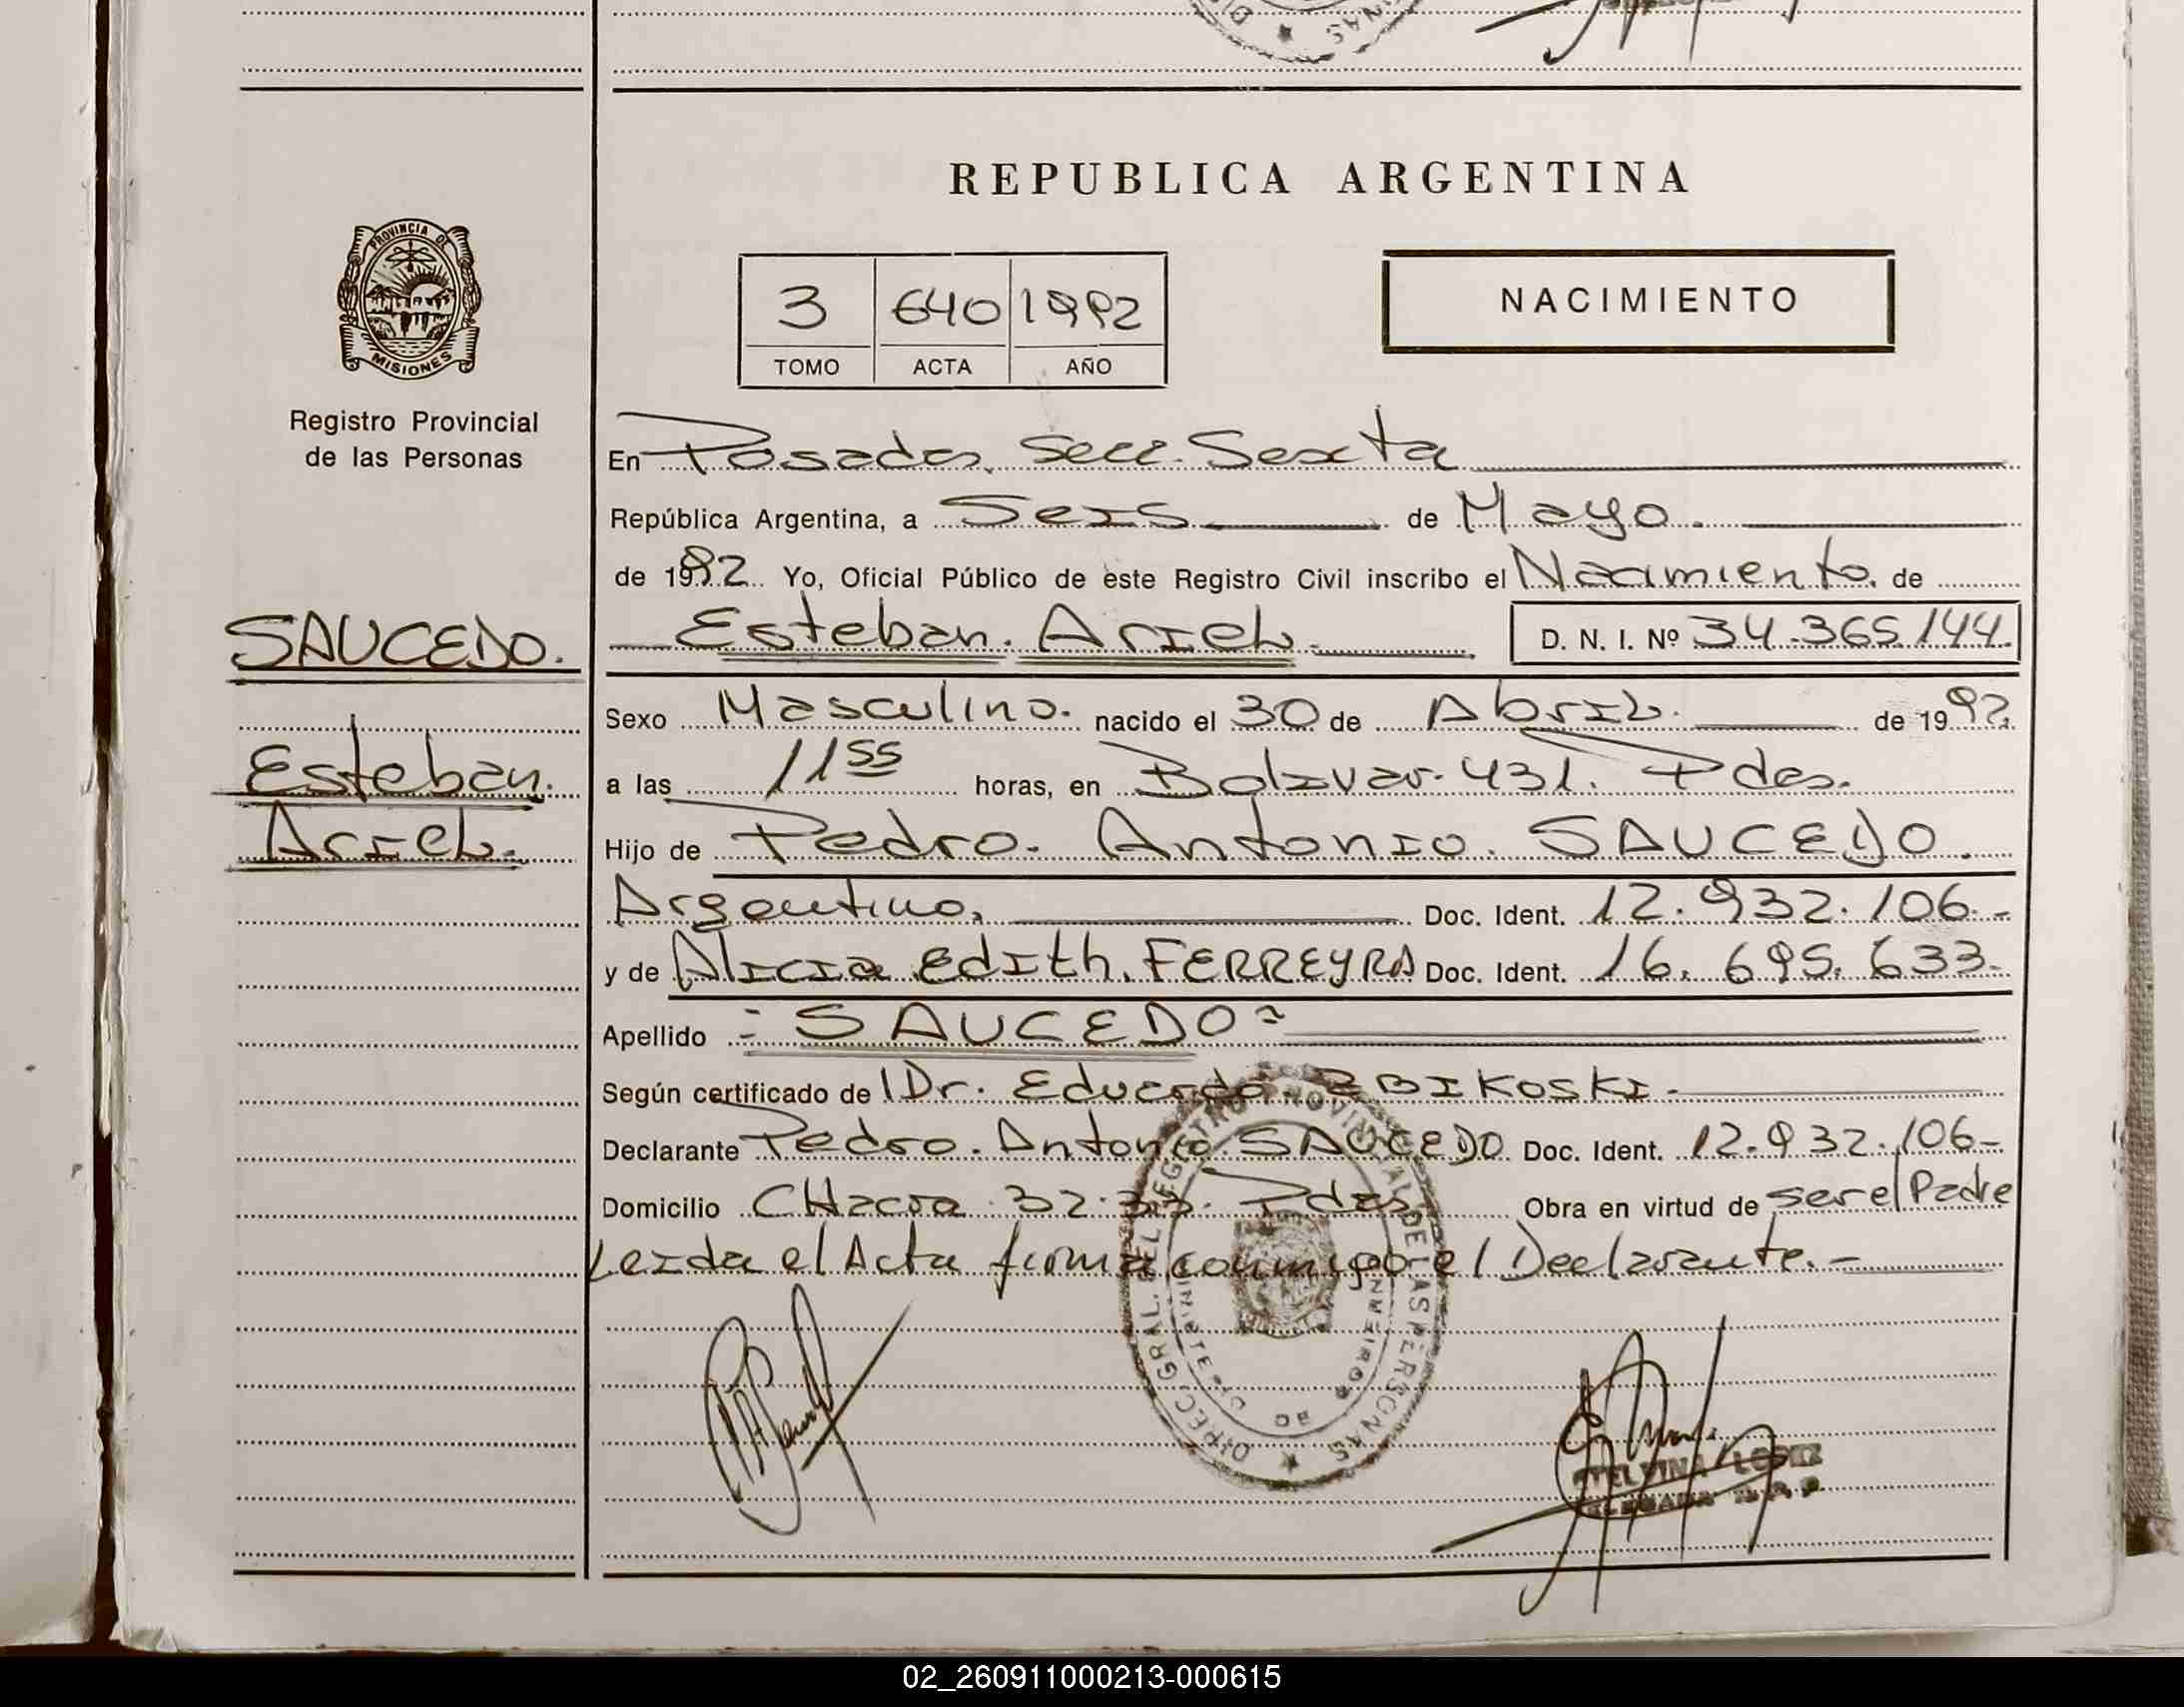 REPUBLICA ARGENTINA
PROVINCIA DE
MISIONES
Registro Provincial
de las Personas
3 640 1992
TOMO ACTA AÑO
NACIMIENTO
En Posadas, Secc. Sexta
República Argentina, a Seis de Mayo.
de 1992. Yo, Oficial Público de este Registro Civil inscribo el Nacimiento. de
SAUCEDO.
Esteban. Ariel. D. N. I. Nº 34.365.144.
Sexo Masculino. nacido el 30 de Abril. de 1992.
Esteban.
a las 11 55 horas, en Bolivar. 431. Pdas.
Ariel.
Hijo de Pedro. Antonio. SAUCEDO.
Argentino, Doc. Ident. 12.932.106.-
y de Alicia Edith. FERREYRA Doc. Ident. 16.695.633.-
Apellido =SAUCEDO=
Según certificado de Dr. Eduardo. ZBIKOSKI.
Declarante Pedro. Antonio. SAUCEDO Doc. Ident. 12.932.106-
Domicilio CHacra 32-33. Pdas. Obra en virtud de ser el Padre
Leida el Acta firma conmigo el Declarante.-
DIREC. GRAL. DEL REGISTRO PROVINCIAL DE LAS PERSONAS
LOPEZ
02_260911000213-000615